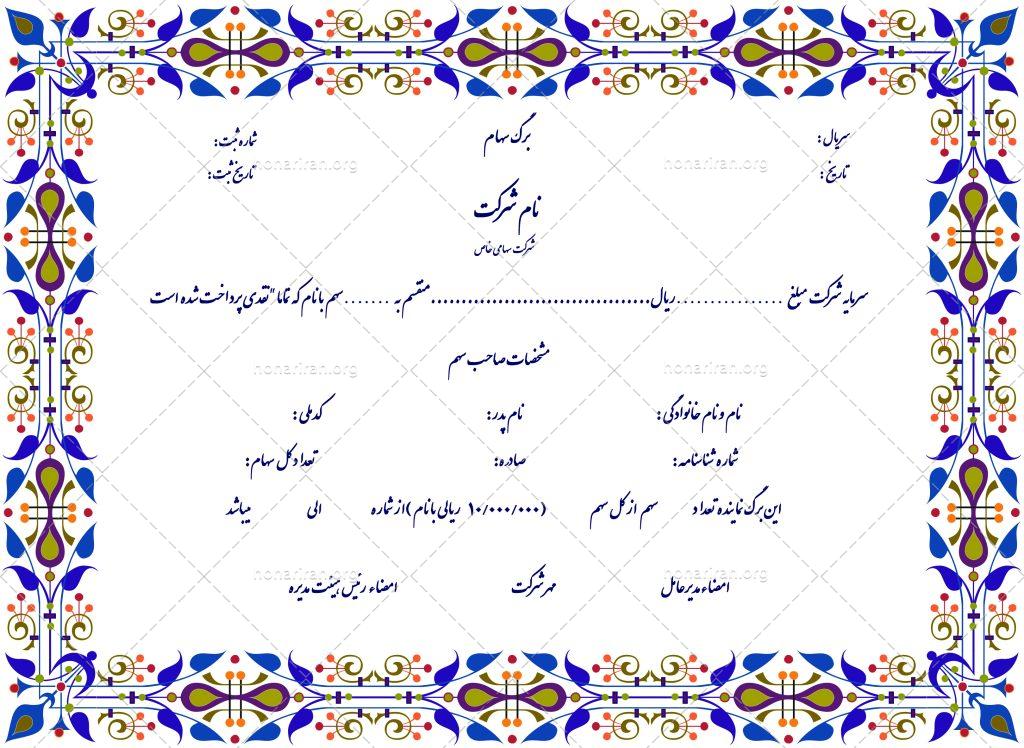 سریال: برگ سهام شماره ثبت:
تاریخ: تاریخ ثبت:
نام شرکت
شرکت سهامی خاص
سرمایه شرکت مبلغ ................ریال....................................منقسم به .......سهم با نام که تماما" نقدی پرداخت شده است
مشخصات صاحب سهم
نام و نام خانوادگی: نام پدر: کد ملی:
شماره شناسنامه: صادره: تعداد کل سهام:
این برگ نماینده تعداد سهم از کل سهم (۱۰/۰۰۰/۰۰۰ ریالی با نام) از شماره الی میباشد
امضاء مدیرعامل مهر شرکت امضاء رئیس هیئت مدیره
honariran.org
honariran.org
honariran.org
honariran.org
honariran.org
honariran.org